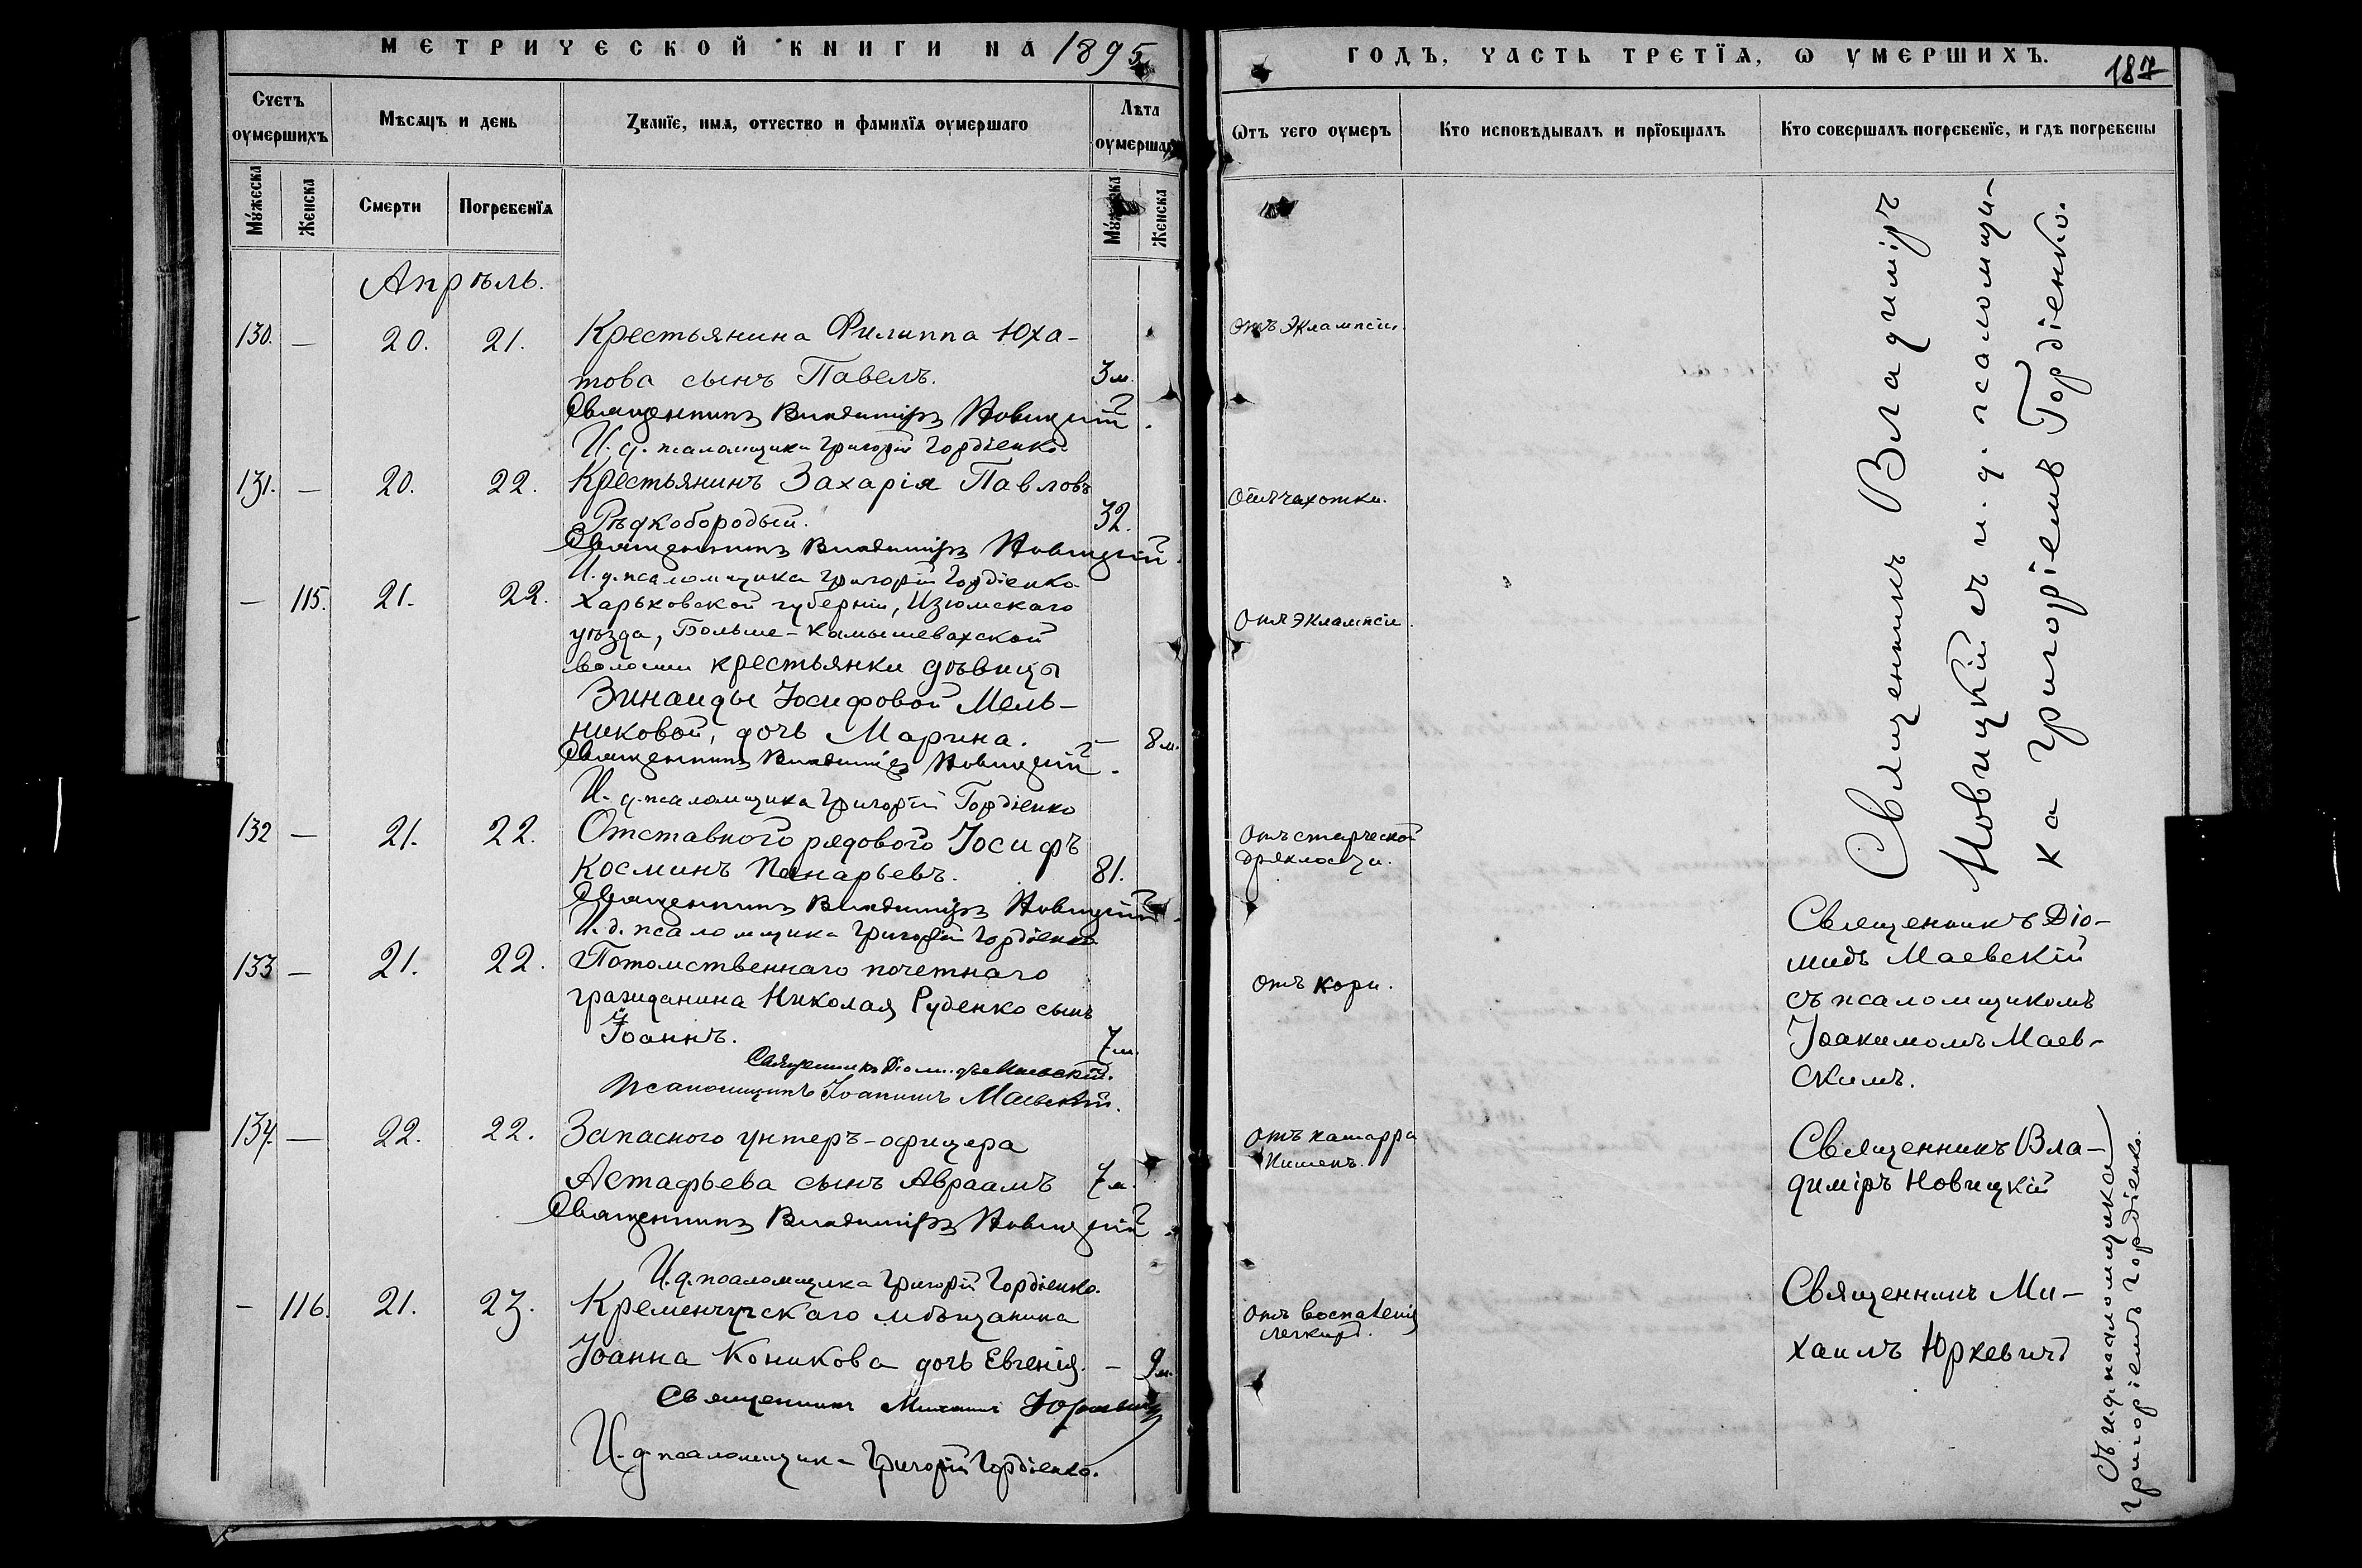 МЕТРИЧЕСКОЙ КНИГИ НА 1895
Счетъ оумершихъ
Мѣсяцъ и день
Званїе, имѧ, отчество и фамилїѧ оумершаго
Лѣта оумершаго
Мꙋжеска
Женска
Смерти
Погребенїѧ
Мꙋжеска
Женска
Апрѣль.
130. — 20. 21. Крестьянина Филиппа Юха-
това сынъ Павелъ. 3 м.
Священникъ Владиміръ Новицкій.
И. д. псаломщика Григорій Гордіенко
131. — 20. 22. Крестьянинъ Захарія Павловъ
Рѣдкобородый. 32.
Священникъ Владиміръ Новицкій.
И. д. псаломщика Григорій Гордіенко
— 115. 21. 22. Харьковской губерніи, Изюмскаго
уѣзда, Больше-Камышевахской
волости крестьянки дѣвицы
Зинаиды Іосифовой Мель-
никовой, дочь Марина. — 8 м.
Священникъ Владиміръ Новицкій.
И. д. псаломщика Григорій Гордіенко
132 — 21. 22. Отставного рядового Іосифъ
Косминъ Панарьевъ. 81.
Священникъ Владиміръ Новицкій.
И. д. псаломщика Григорій Гордіенко
133 — 21. 22. Потомственнаго почетнаго
гражданина Николая Руденко сынъ
Іоаннъ. 7 м.
Священникъ Діомидъ Маевскій.
Псаломщикъ Іоакимъ Маевскій.
134. — 22. 22. Запасного унтеръ-офицера
Астафьева сынъ Авраамъ 7 м.
Священникъ Владиміръ Новицкій.
И. д. псаломщика Григорій Гордіенко.
— 116. 21. 23. Кременчугскаго мѣщанина
Іоанна Коникова дочь Евгенія. — 9 м.
Священникъ Михаилъ Юркевичъ
И. д. псаломщика Григорій Гордіенко.
ГОДЪ, ЧАСТЬ ТРЕТЇѦ, Ѡ УМЕРШИХЪ.
187
Ѿтъ чего оумеръ
Кто исповѣдывалъ и прїобщалъ
Кто совершалъ погребенїе, и гдѣ погребены
Отъ эклампсіи.
Отъ чахотки.
Отъ эклампсіи.
Отъ старческой
дряхлости.
Отъ кори.
Отъ катарра
кишекъ.
Отъ воспаленія
легкихъ.
Священникъ Владиміръ
Новицкій съ и. д. псаломщи-
ка Григоріемъ Гордіенко.
Священникъ Діо-
мидъ Маевскій
съ псаломщикомъ
Іоакимомъ Маев-
скимъ.
Священникъ Вла-
диміръ Новицкій
Священникъ Ми-
хаилъ Юркевичъ
съ и. д. псаломщика
Григоріемъ Гордіенко.